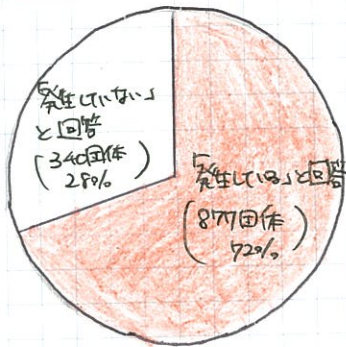 「発生していない」
と回答
(340団体
28%)
「発生している」と回答
(877団体
72%)